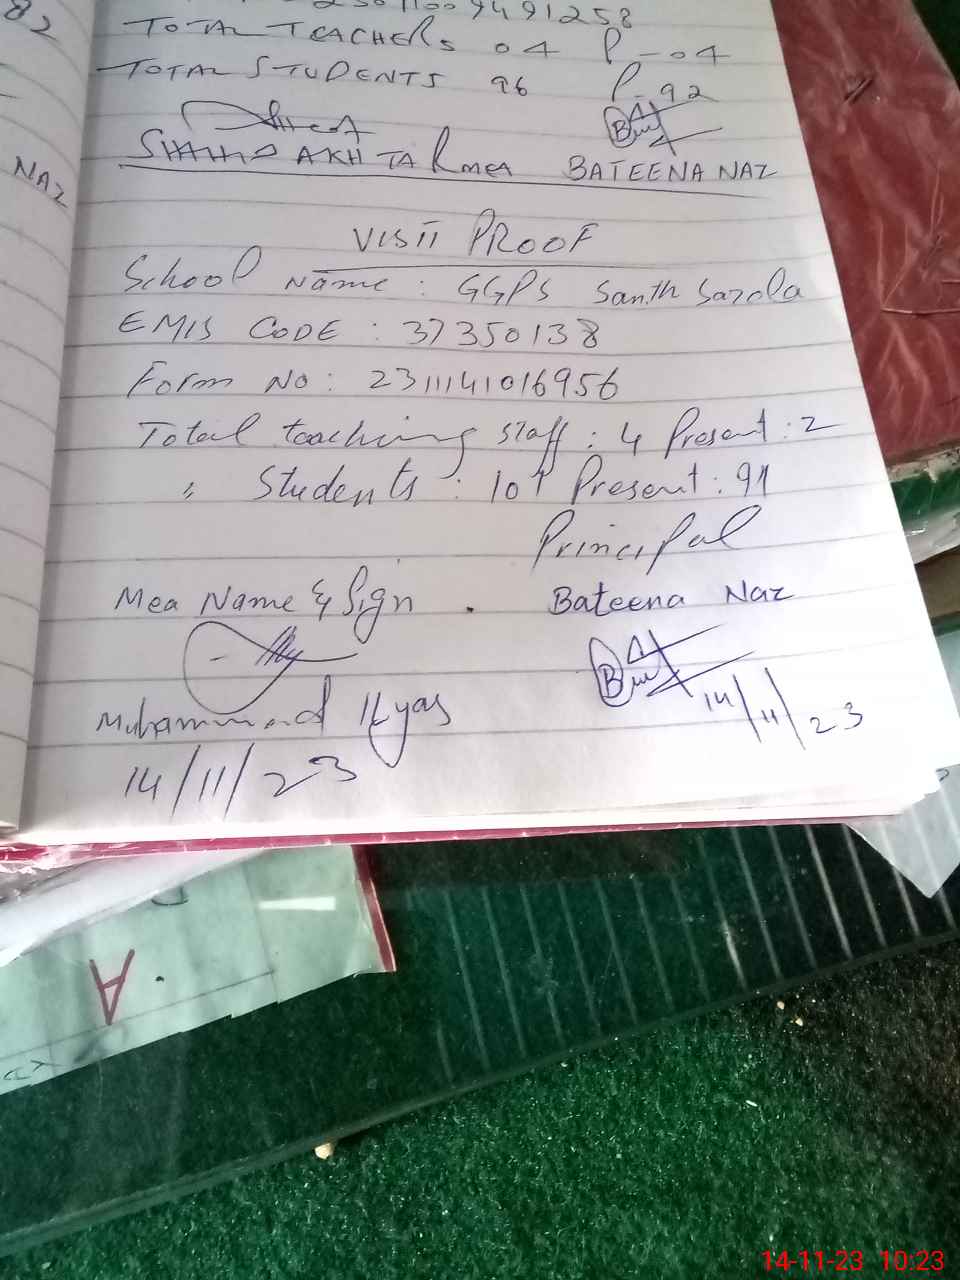 82
NAZ
TOTAL TEACHERS 04 P-04
TOTAL STUDENTS 96 P-92
AKHTAR MEA BATEENA NAZ
VISIT PROOF
School Name: GGPS Santh Sarola
EMIS CODE: 37350138
Form No: 2311141016956
Total teaching staff: 4 Present: 2
" Students: 101 Present: 91
Principal
Mea Name & Sign. Bateena Naz
Muhammad Ilyas 14/11/23
14/11/23
A
14-11-23 10:23